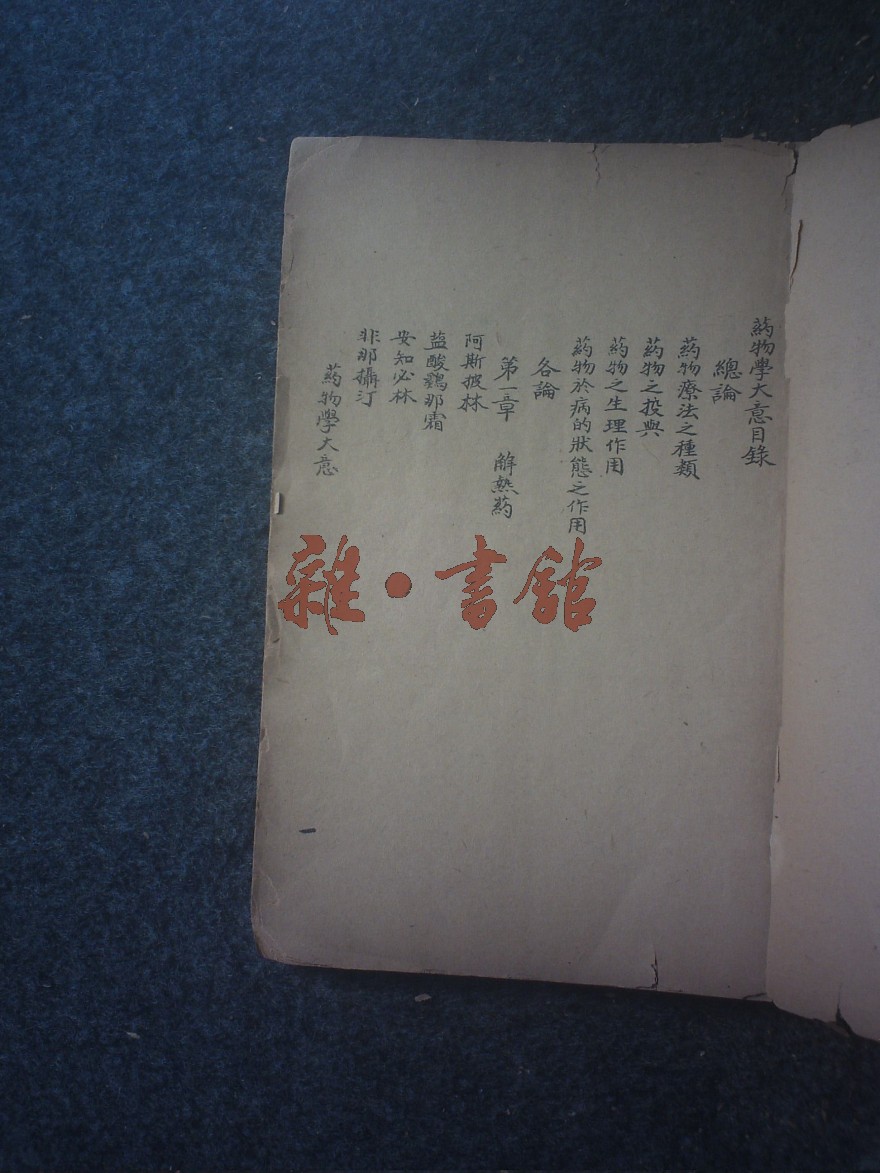 藥物學大意目錄
總論
藥物療法之種類
藥物之投與
藥物之生理作用
藥物於病的狀態之作用
各論
第一章 解熱藥
阿斯披林
盐酸鷄那霜
安知必林
非那攝汀
藥物學大意
雜·書館